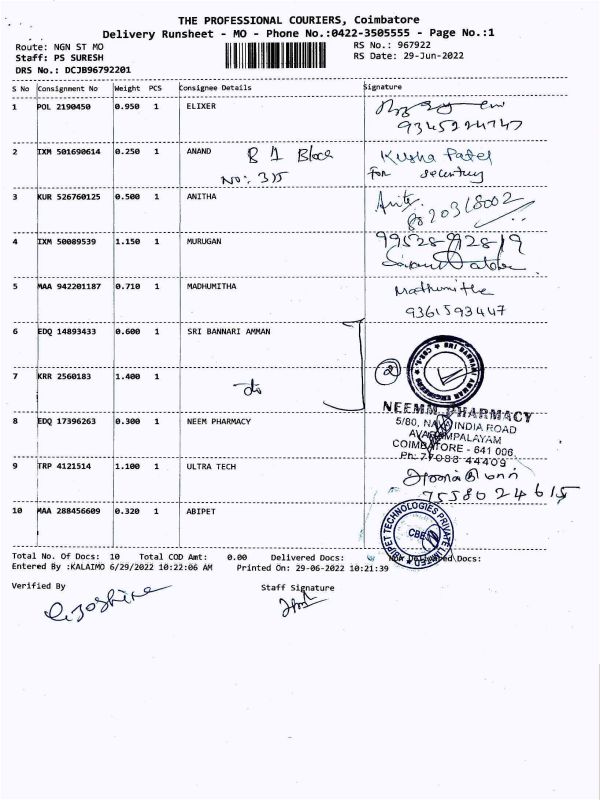 THE PROFESSIONAL COURIERS, Coimbatore
Delivery Runsheet - MO - Phone No.:0422-3505555 - Page No.:1
Route: NGN ST MO
RS No.: 967922
Staff: PS SURESH
RS Date: 29-Jun-2022
DRS No.: DCJB96792201
S No Consignment No Weight PCS Consignee Details Signature
1 POL 2190450 0.950 1 ELIXER
9345224747
2 IXM 501690614 0.250 1 ANAND B 1 Block Kusha Patel
No: 315 For security
3 KUR 526760125 0.500 1 ANITHA
4 IXM 50089539 1.150 1 MURUGAN 99528-92819
5 MAA 942201187 0.710 1 MADHUMITHA Mathumitha
9361593447
6 EDQ 14893433 0.600 1 SRI BANNARI AMMAN
7 KRR 2560183 1.400 1 do 2
NEEM PHARMACY
8 EDQ 17396263 0.300 1 NEEM PHARMACY 5/80, NAVA INDIA ROAD
AVARAMPALAYAM
COIMBATORE - 641 006
Ph: 77088 44409
9 TRP 4121514 1.100 1 ULTRA TECH
7558024615
10 MAA 288456609 0.320 1 ABIPET
ABIPET TECHNOLOGIES PRIVATE LIMITED
CBE
Total No. Of Docs: 10 Total COD Amt: 0.00 Delivered Docs: Non Delivered Docs:
Entered By :KALAIMO 6/29/2022 10:22:06 AM Printed On: 29-06-2022 10:21:39
Verified By Staff Signature